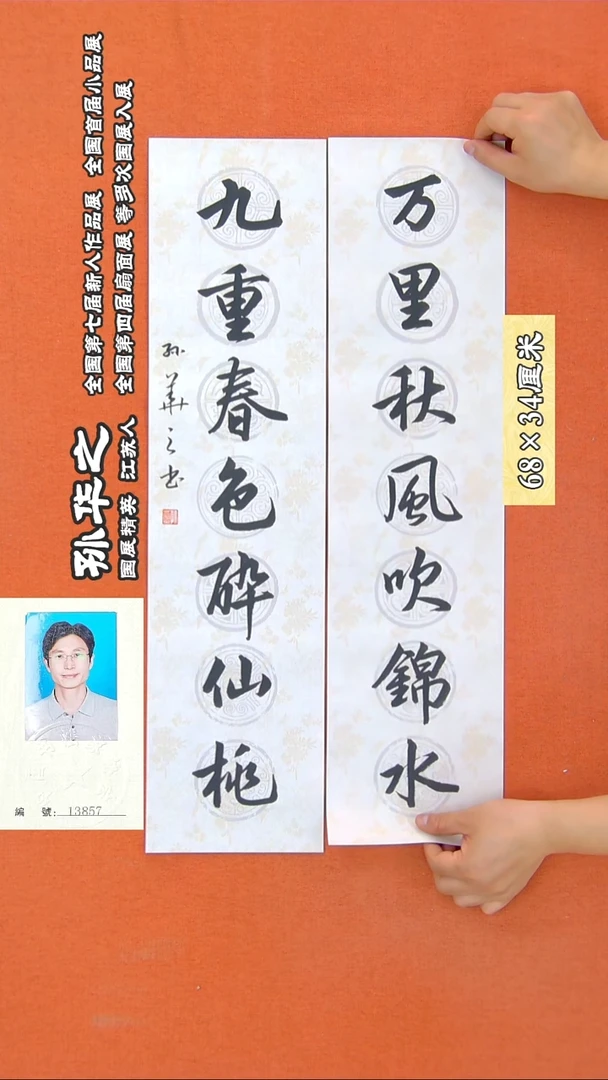 万里秋風吹錦水
九重春色醉仙桃
孙華之书
全国第七届新人作品展 全国首届小品展
全国第四届扇面展 等多次国展入展
孙华之
国展精英 江苏人
68×34厘米
編 號: 13857